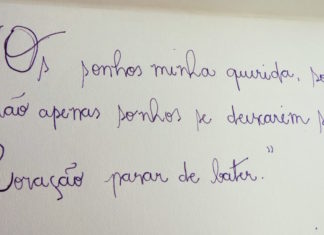 "Os sonhos minha querida, são
não apenas sonhos se deixarem s
Coração parar de bater."